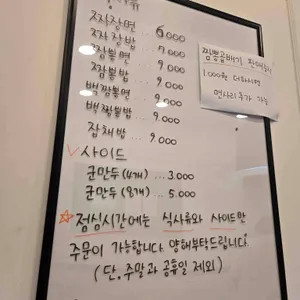 짜장면 ... 6.000
짜장밥 ... 7.000
짬뽕면 ... 9.000
짬뽕밥 ... 9.000
백짬뽕면 ... 9.000
백짬뽕밥 ... 9.000
잡채밥 ... 9.000
사이드
군만두(4개) ... 3.000
군만두(8개) ... 5.000
점심시간에는 식사류와 사이드만
주문이 가능합니다. 양해부탁드립니다.
(단, 주말과 공휴일 제외)
짬뽕곱배기
1000원
면사리 추가 가능